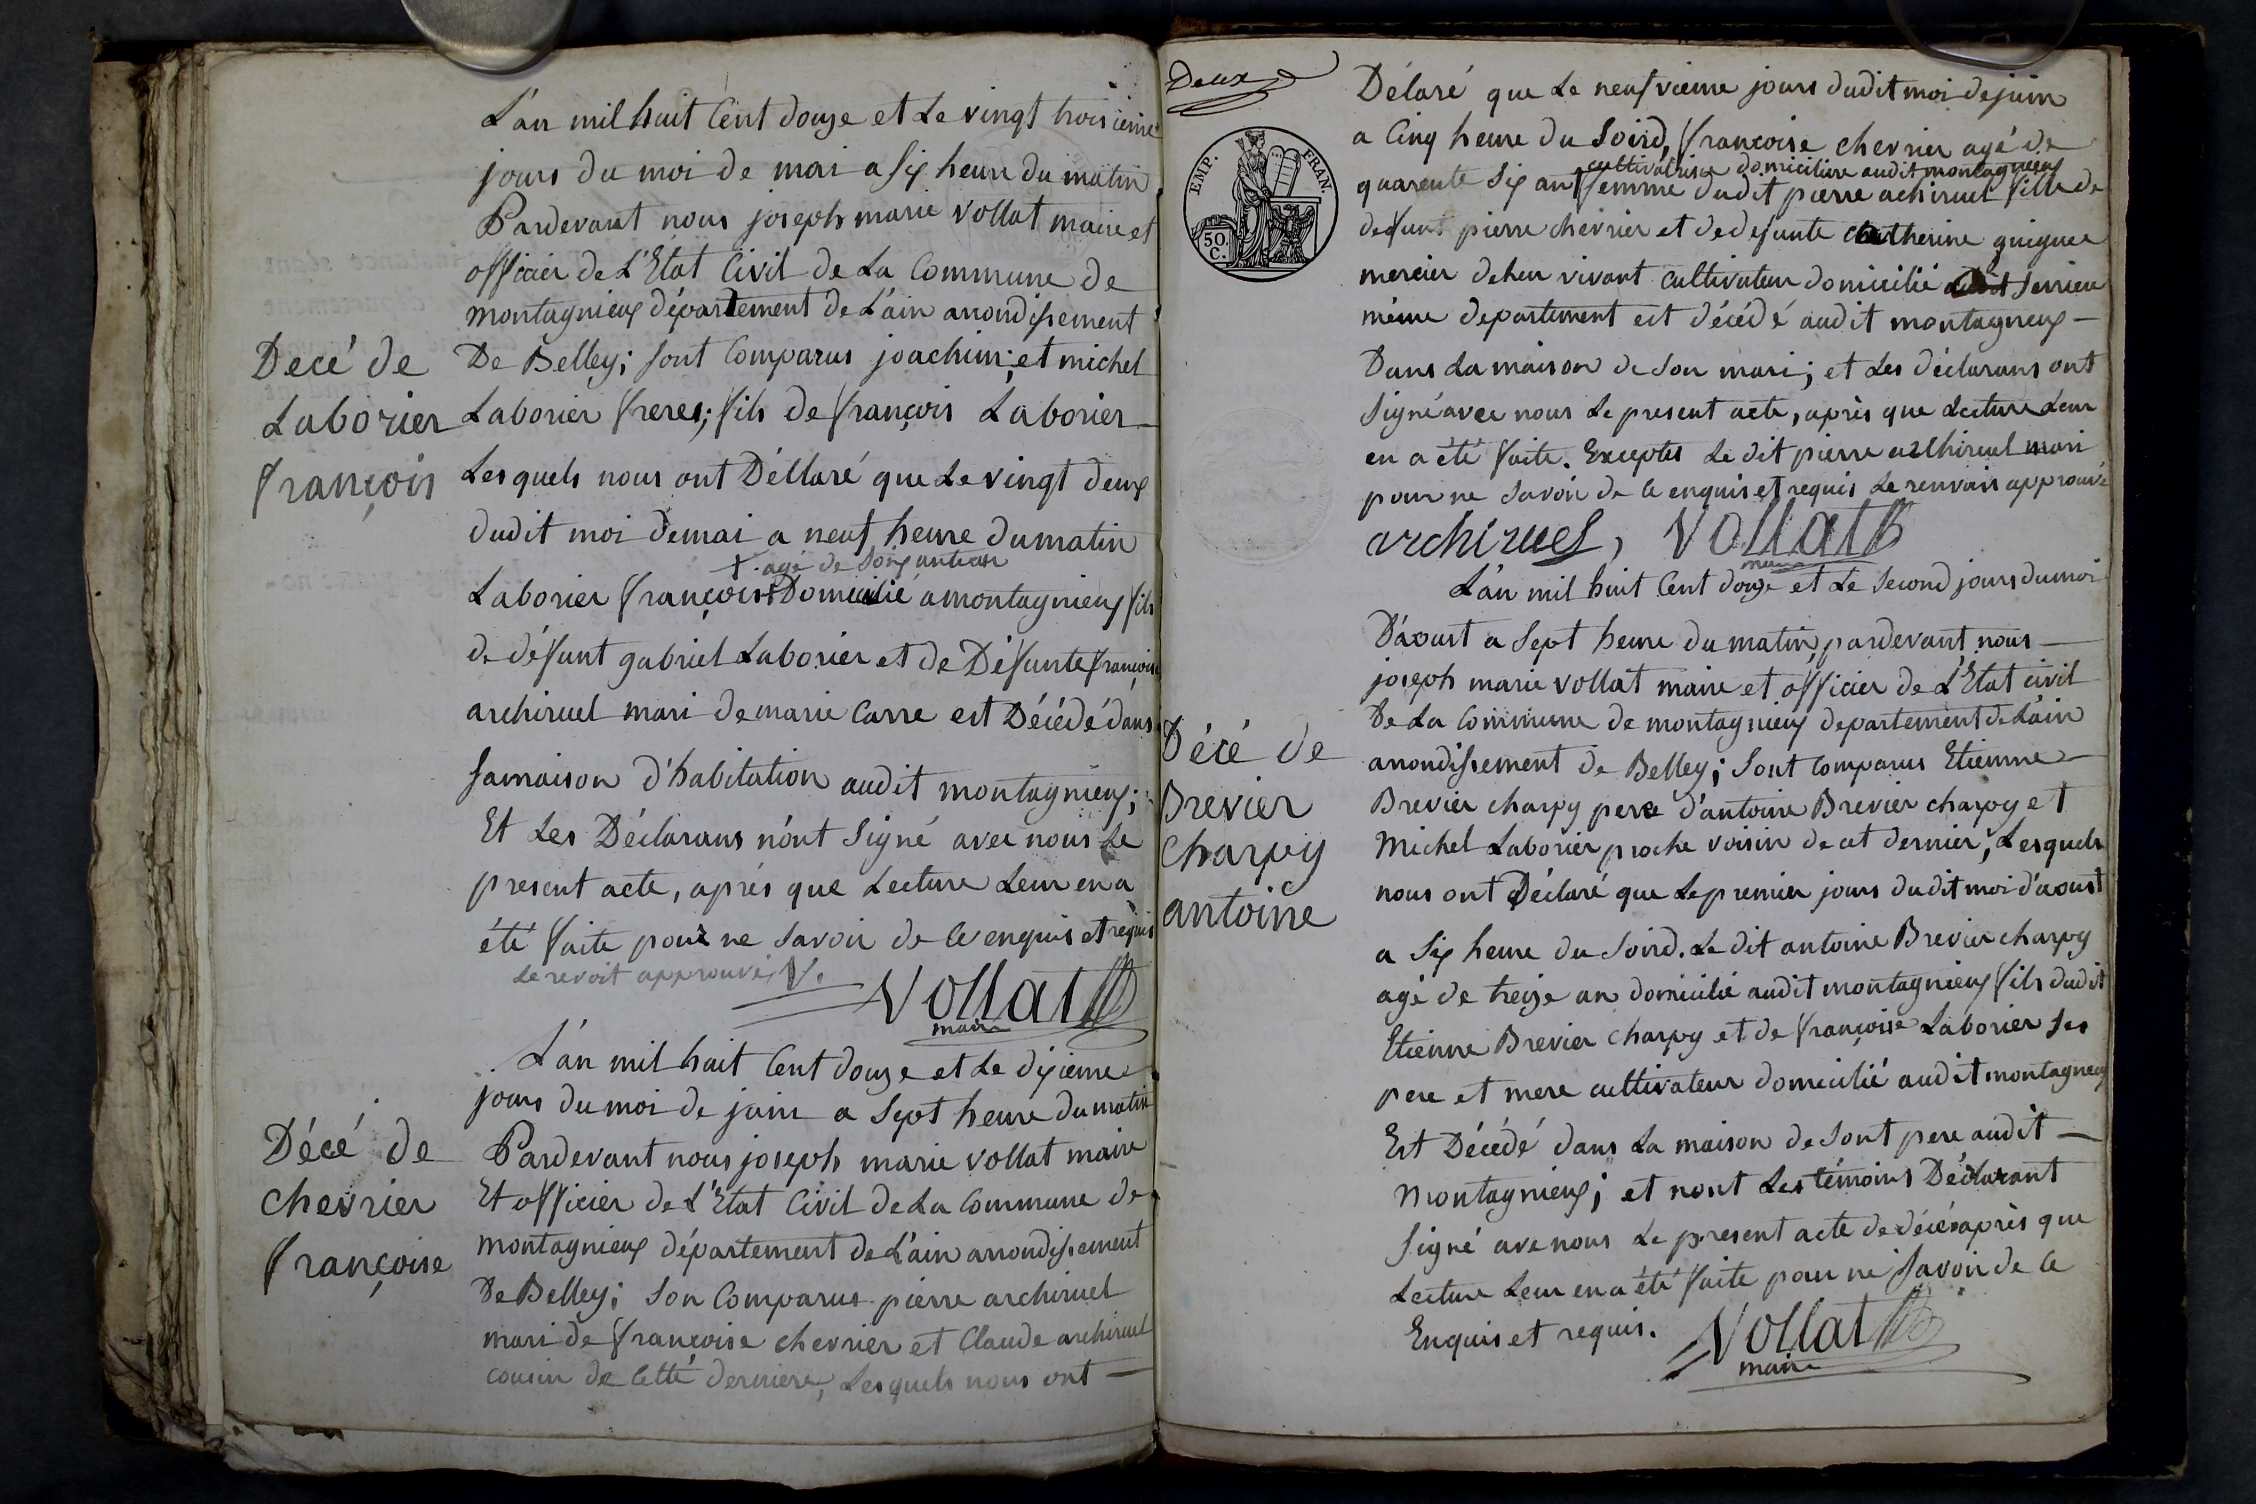 Decé de
Laborier
françois
L'an mil huit Cent douze et Le vingt troisieme
jours du moi de mai a Six heure du matin
Pardevant nous joseph marie vollat maire et
officier de L'Etat Civil de La Commune de
montagnieux département de L'ain arrondissement
De Belley; sont Comparus joachim; et michel
Laborier freres; fils de françois Laborier
Lesquels nous ont Déclaré que Le vingt deux
dudit moi demai a neuf heure dumatin
+ agé de Soixante an
Laborier françois + Domicilié a montagnieux fils
de défunt gabriel Laborier et de Défunte françoise
archiruel mari demarie Carre est Décédé dans
samaison d'habitation audit montagnieux;
Et Les Déclarans n'ont Signé avec nous Le
present acte, après que Lecture Leur en a
été faite pour ne Savoir de Ce enquis et requis
Le revoit approuvé, V.
Vollat
maire
Décé de
chevrier
françoise
L'an mil huit Cent douze et Le dixieme
jours du moi de juin a Sept heure du matin
Pardevant nous joseph marie vollat maire
Et officier de L'Etat Civil de La Commune de
montagnieux département de L'ain arrondissement
De Belley; Son Comparus pierre archiruel
mari de françoise chevrier et Claude archiruel
cousin de Cette derniere, Lesquels nous ont
Deux
EMP. FRAN.
50. C.
Délaré que Le neufvieme jours dudit moi dejuin
a Cinq heure du Soird, françoise chevrier agé de
cultivatrice domiciliée audit montagnieux
quarente Six an femme dudit pierre achiruel fille de
defunt pierre chevrier et de defunte Catherine guigue
mercier deleur vivant cultivateur domicilié Serrieu
même departement est décédé audit montagneux
Dans La maison de Son mari; et Les déclarans ont
Signé avec nous Le present acte, après que Lecture Leur
en a été faite. Exceptes Le dit pierre archiruel mari
pour ne Savoir de Ce enquis et requis Le renvois approuvé
archiruel, Vollat
maire
L'an mil huit Cent douze et Le Second jours du moi
D'aoust a Sept heure du matin, pardevant nous
joseph marie vollat maire et officier de L'Etat civil
De La Commune de montagnieux departement de L'ain
arrondissement de Belley; Sont Comparus Etienne
Décé de
Brevier
charpy
antoine
Brevier charpy pere d'antoine Brevier charpy et
Michel Laborier proche voisin de cet dernier, Lesquels
nous ont Déclaré que Le premier jours dudit moi d'aoust
a Six heure du Soird. Le dit antoine Brevier charpy
agé de treize an domicilié audit montagnieux fils dudit
Etienne Brevier charpy et de françoise Laborier Ses
pere et mere cultivateur domicilié audit montagneux
Est Décédé dans La maison de Sont pere audit
Montagnieux; et nont Les témoins Déclarant
Signé ave nous Le present acte de décés après que
Lecture Leur en a été faite pour ne Savoir de Ce
Enquis et requis.
Vollat
maire